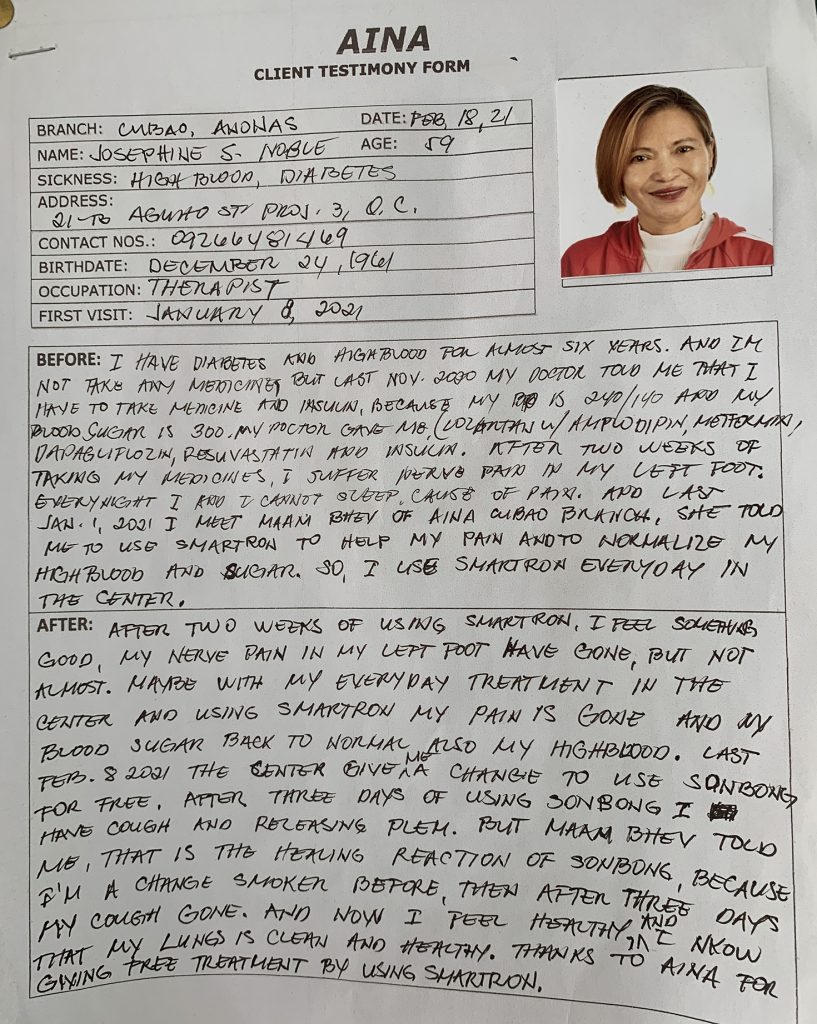 AINA
CLIENT TESTIMONY FORM
BRANCH: CUBAO, ANONAS DATE: FEB, 18, 21
NAME: JOSEPHINE S. NOBLE AGE: 59
SICKNESS: HIGH BLOOD, DIABETES
ADDRESS:
21-TO AGUHO ST PROJ. 3, Q.C.
CONTACT NOS.: 09266481469
BIRTHDATE: DECEMBER 24, 1961
OCCUPATION: THERAPIST
FIRST VISIT: JANUARY 8, 2021
BEFORE: I HAVE DIABETES AND HIGHBLOOD FOR ALMOST SIX YEARS. AND IM
NOT TAKE ANY MEDICINES BUT LAST NOV. 2020 MY DOCTOR TOLD ME THAT I
HAVE TO TAKE MEDICINE AND INSULIN, BECAUSE MY IS 240/140 AND MY
BLOOD SUGAR IS 300. MY DOCTOR GAVE ME, (LOZARTAN W/ AMPLODIPIN, METFORMIN,
DAPAGLIFLOZIN, RESUVASTATIN AND INSULIN. AFTER TWO WEEKS OF
TAKING MY MEDICINES, I SUFFER NERVE PAIN IN MY LEFT FOOT.
EVERYNIGHT I AND I CANNOT SLEEP, CAUSE OF PAIN. AND LAST
JAN. 1, 2021 I MEET MAAM BHEV OF AINA CUBAO BRANCH, SHE TOLD
ME TO USE SMARTRON TO HELP MY PAIN AND TO NORMALIZE MY
HIGHBLOOD AND SUGAR. SO, I USE SMARTRON EVERYDAY IN
THE CENTER.
AFTER: AFTER TWO WEEKS OF USING SMARTRON, I FEEL SOMETHING
GOOD, MY NERVE PAIN IN MY LEFT FOOT HAVE GONE, BUT NOT
ALMOST. MAYBE WITH MY EVERYDAY TREATMENT IN THE
CENTER AND USING SMARTRON MY PAIN IS GONE AND MY
BLOOD SUGAR BACK TO NORMAL ALSO MY HIGHBLOOD. LAST
FEB. 8 2021 THE CENTER GIVE ME A CHANGE TO USE SONBONG,
FOR FREE. AFTER THREE DAYS OF USING SONBONG I
HAVE COUGH AND RELEASING PLEM. BUT MAAM BHEV TOLD
ME, THAT IS THE HEALING REACTION OF SONBONG, BECAUSE
I'M A CHANGE SMOKER BEFORE, THEN AFTER THREE DAYS
MY COUGH GONE. AND NOW I FEEL HEALTHY, AND I NKOW
THAT MY LUNGS IS CLEAN AND HEALTHY. THANKS TO AINA FOR
GIVING FREE TREATMENT BY USING SMARTRON.